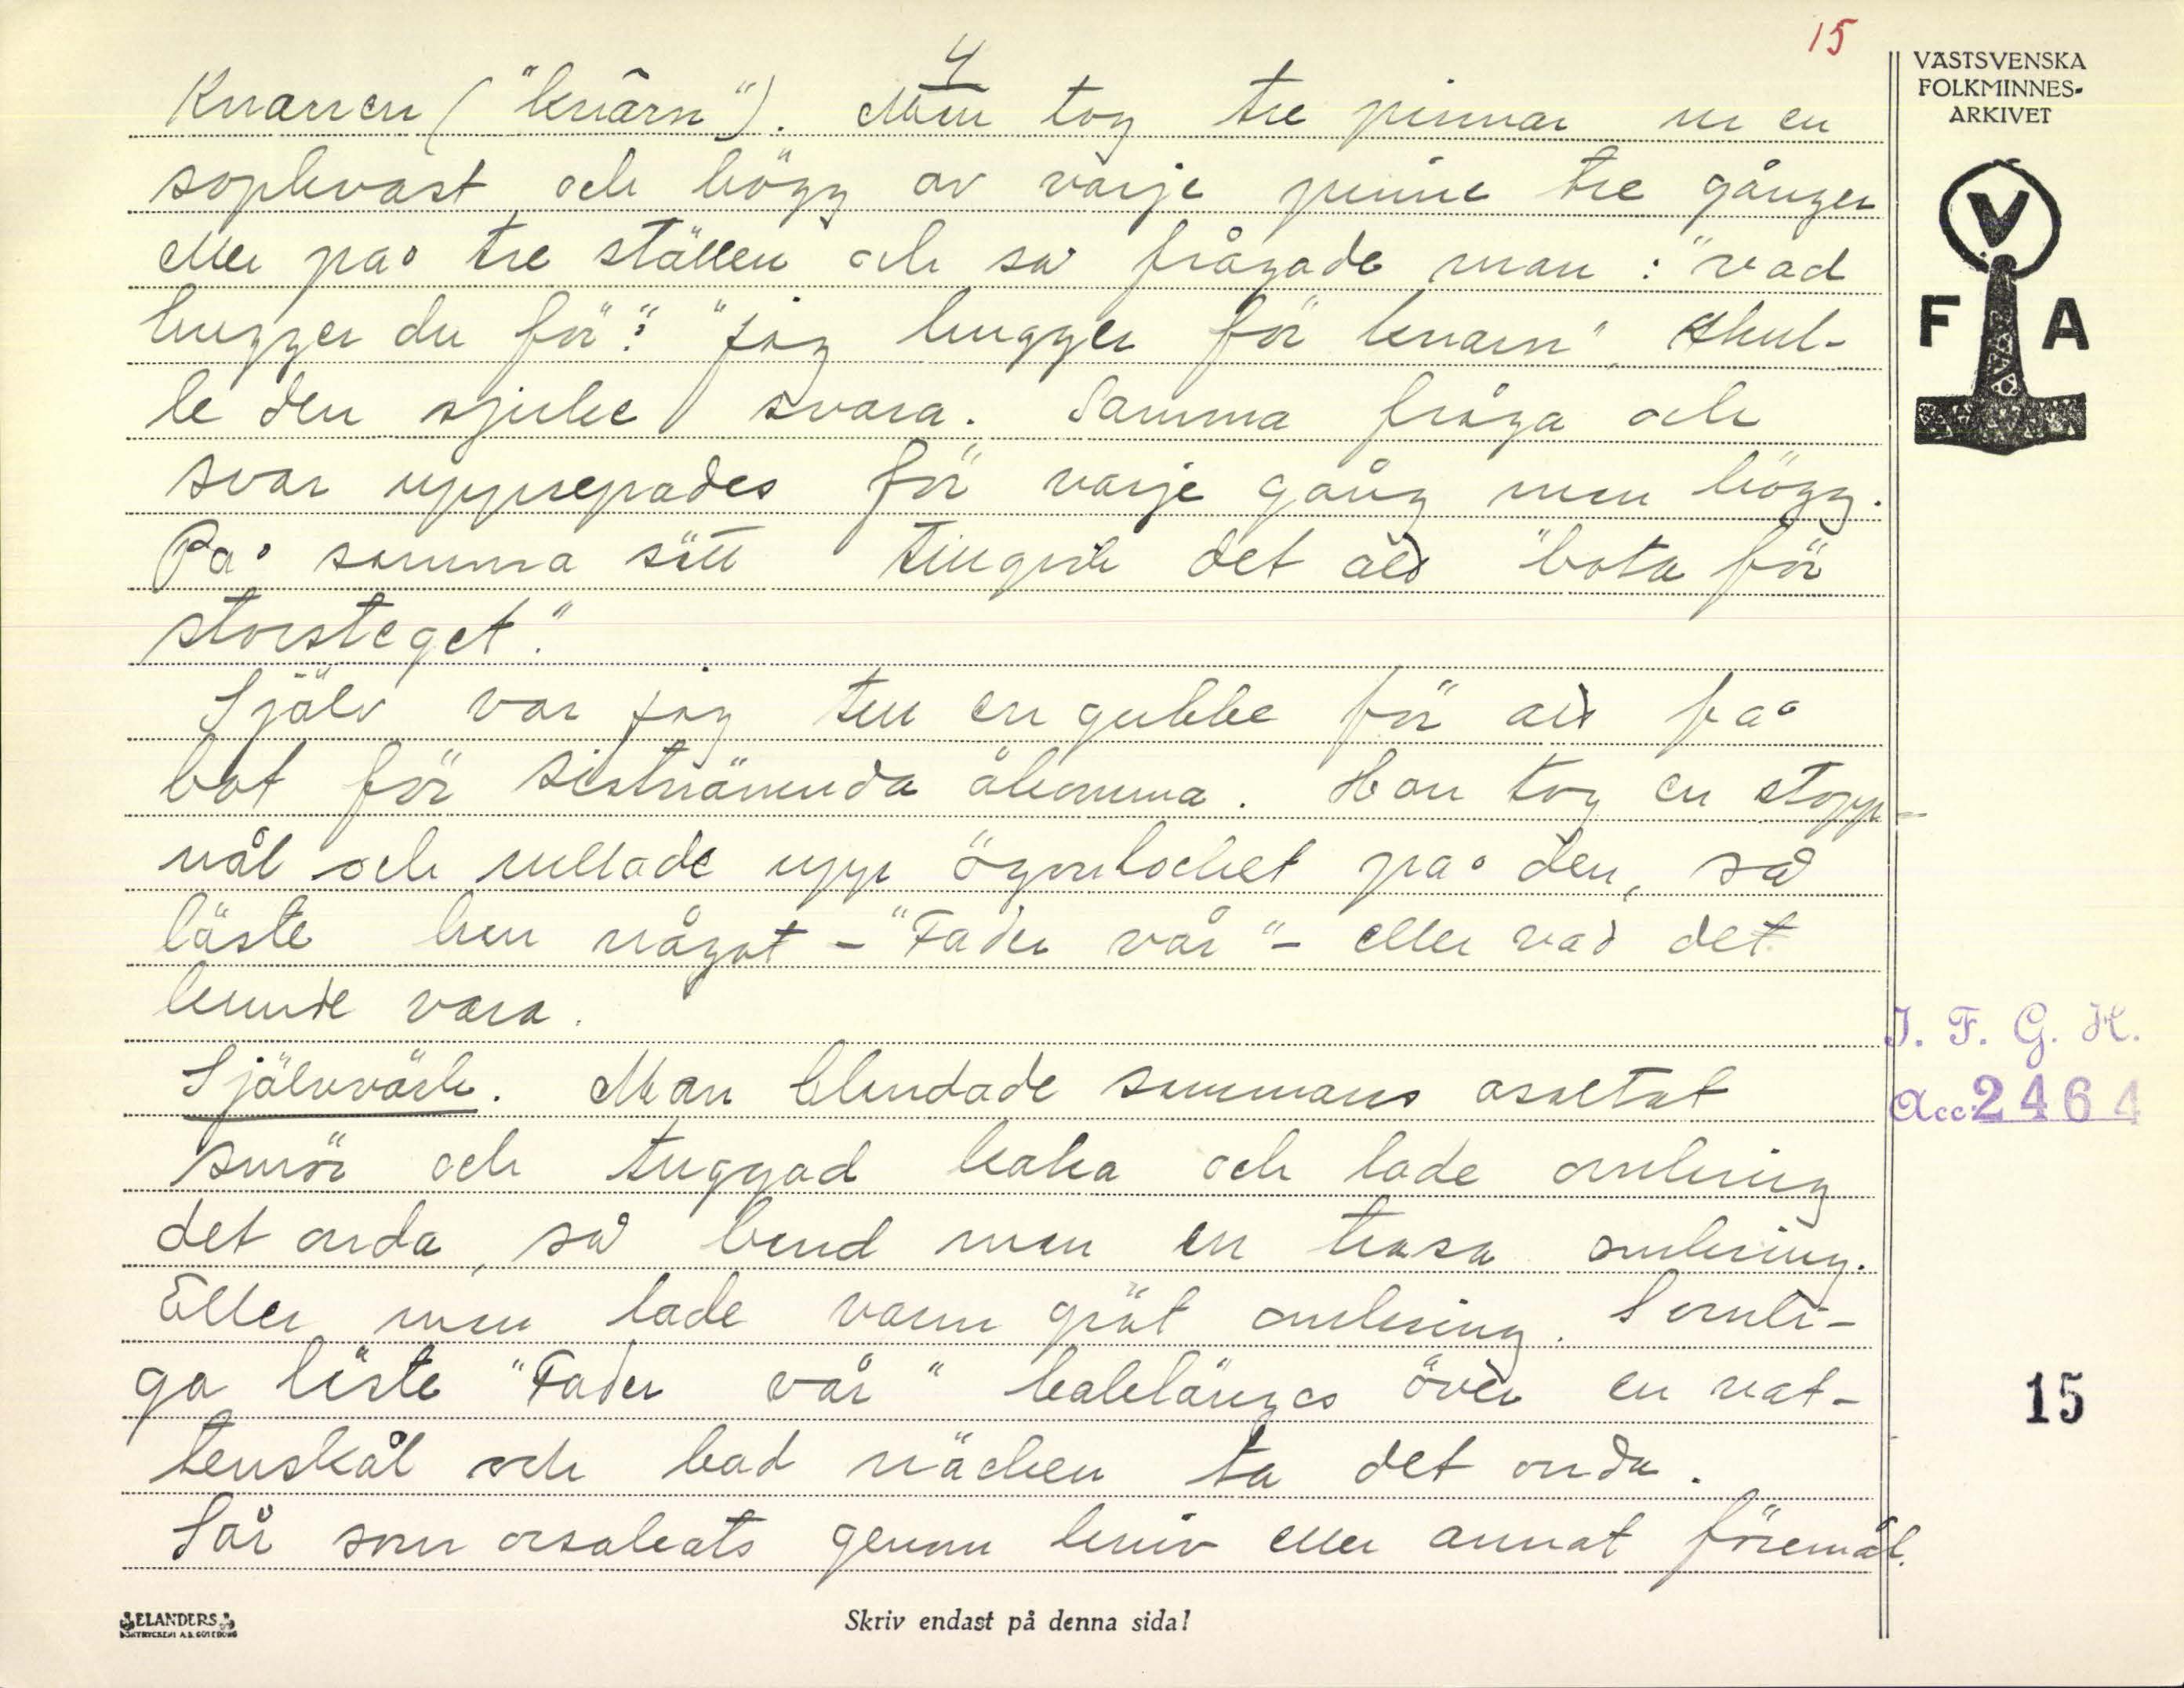 15
4
VÄSTSVENSKA
FOLKMINNES-
ARKIVET
V
F A
Knarren ("knärn"). Man tog tre pinnar ur en
sopkvast och högg av varje pinne tre gånger
eller på tre ställen och så frågade man: "vad
hugger du för": "jag hugger för knarrn" skul-
le den sjuke svara. Samma fråga och
svar upprepades för varje gång man högg.
På samma sätt tillgick det att "bota för
storsteget."
Själv var jag till en gubbe för att få
bot för sistnämnda åkomma. Han tog en stopp-
nål och rullade upp ögonlocket på den, så
läste han något - "Fader vår" - eller vad det
kunde vara.
Självvärk. Man blandade sammans osaltat
smör och tuggad kaka och lade omkring
det onda, så band man en trasa omkring.
Eller man lade varm gröt omkring. Somli-
ga läste "Fader vår" baklänges över en vat-
tenskål och bad näcken ta det onda.
Sår som orsakats genom kniv eller annat föremål.
I. F. G. H.
Acc 2464
15
ELANDERS
BOKTRYCKERI A.B. GÖTEBORG
Skriv endast på denna sida!